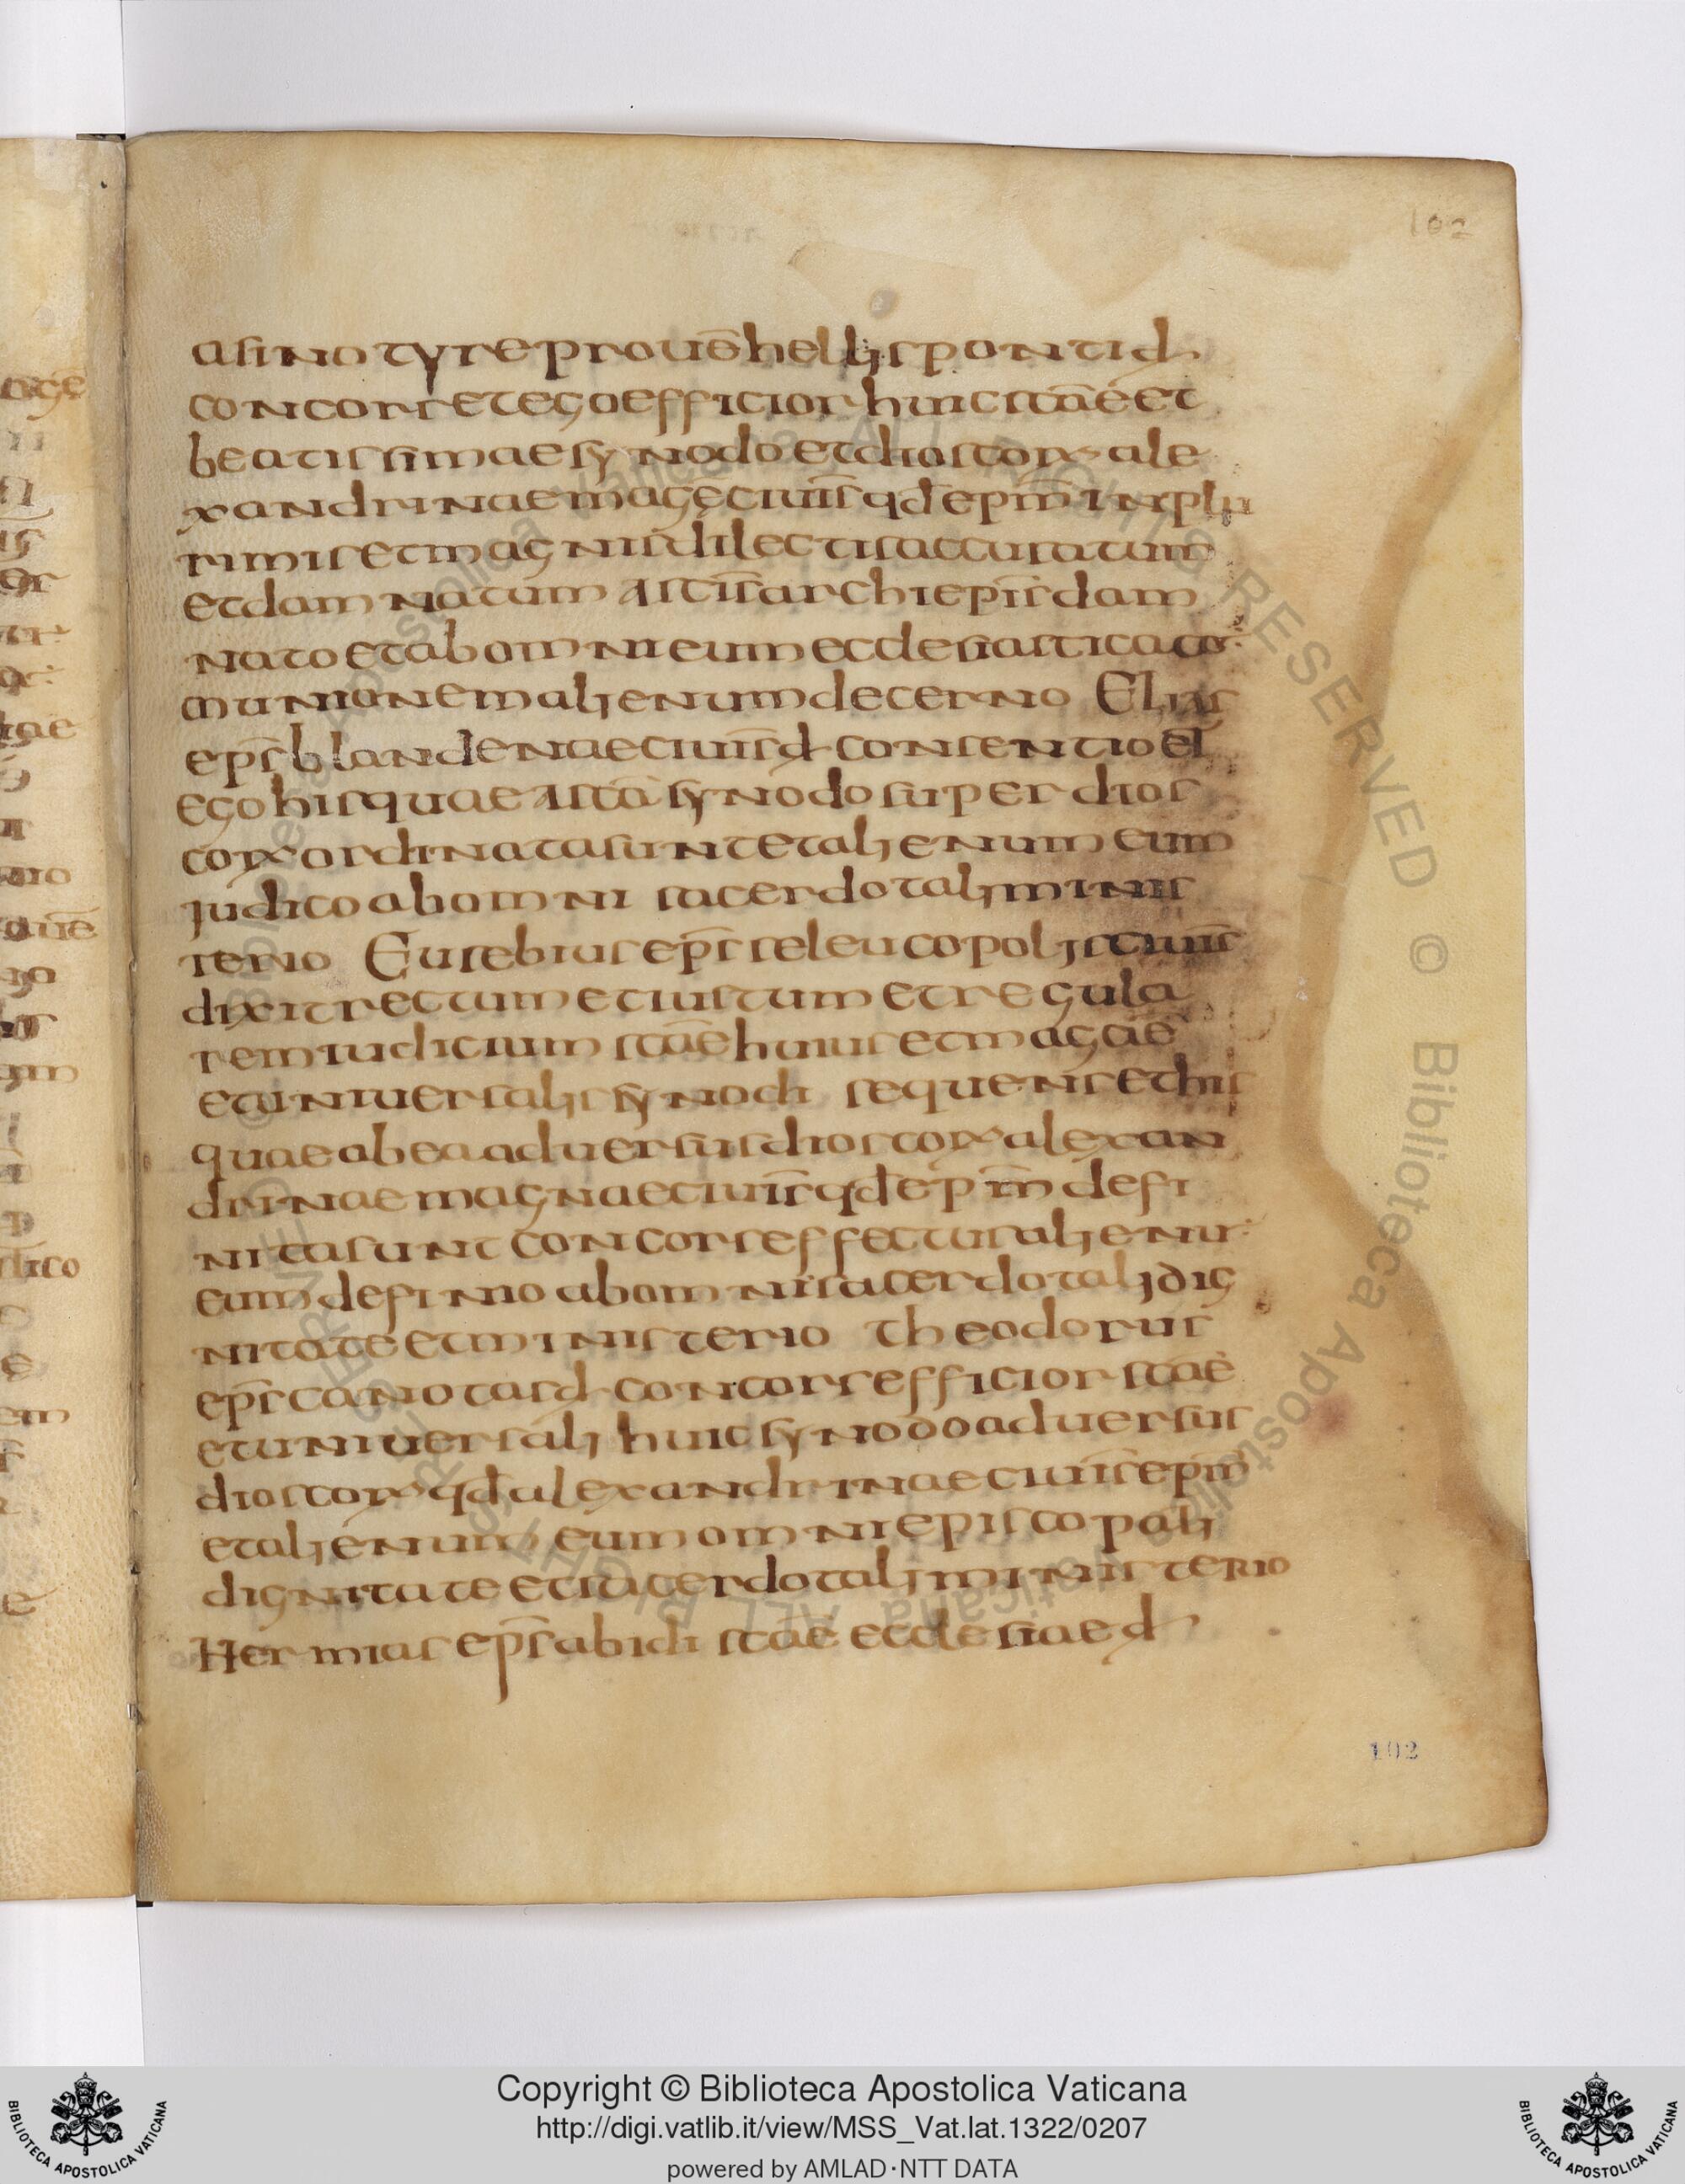 102
asinotyreprouēhellispontid
concorsetegoefficiorhuicstāeet
beatissimaesynodoetdioscorūale
xandrinaemagęciuīsqdepm̄inplu
rimisetmagnisdilectisaccusatum
etdamnatumascīsarchiepīsdam
natoetabomnieumecclesiasticacō
munionemalienumdecerno Elias
ep̄sblandenaeciuīsdconsentioet
egohisquaeascāsynodosuperdios
corūordinatasuntetalienumeum
iudicoabomni sacerdotaliminis
terio Eusebiusep̄sseleucopolisciuīs
dixitrectumetiustumetregula
remiudicium stāehuiusetmagāe
etuniuersalissynodi sequensethis
quaeabeaaduersusdioscorūalexan
drinaemagnaeciuīsqdepm̄defi
nitasuntconcorseffectusalienū
eumdefinoabomnisacerdotalidig
nitateetministerio Theodorus
ep̄scanotasdconcorsefficiorstāe
etuniuersalihuicsynodoaduersus
dioscorūqdalexandrinaeciuīsepm̄
etalienumeumomniepiscopali
dignitateetsacerdotaliministerio
Hermiasep̄sabidistāeecclesiaed
102
Copyright © Biblioteca Apostolica Vaticana
http://digi.vatlib.it/view/MSS_Vat.lat.1322/0207
powered by AMLAD·NTT DATA
BIBLIOTECA APOSTOLICA VATICANA
BIBLIOTECA APOSTOLICA VATICANA